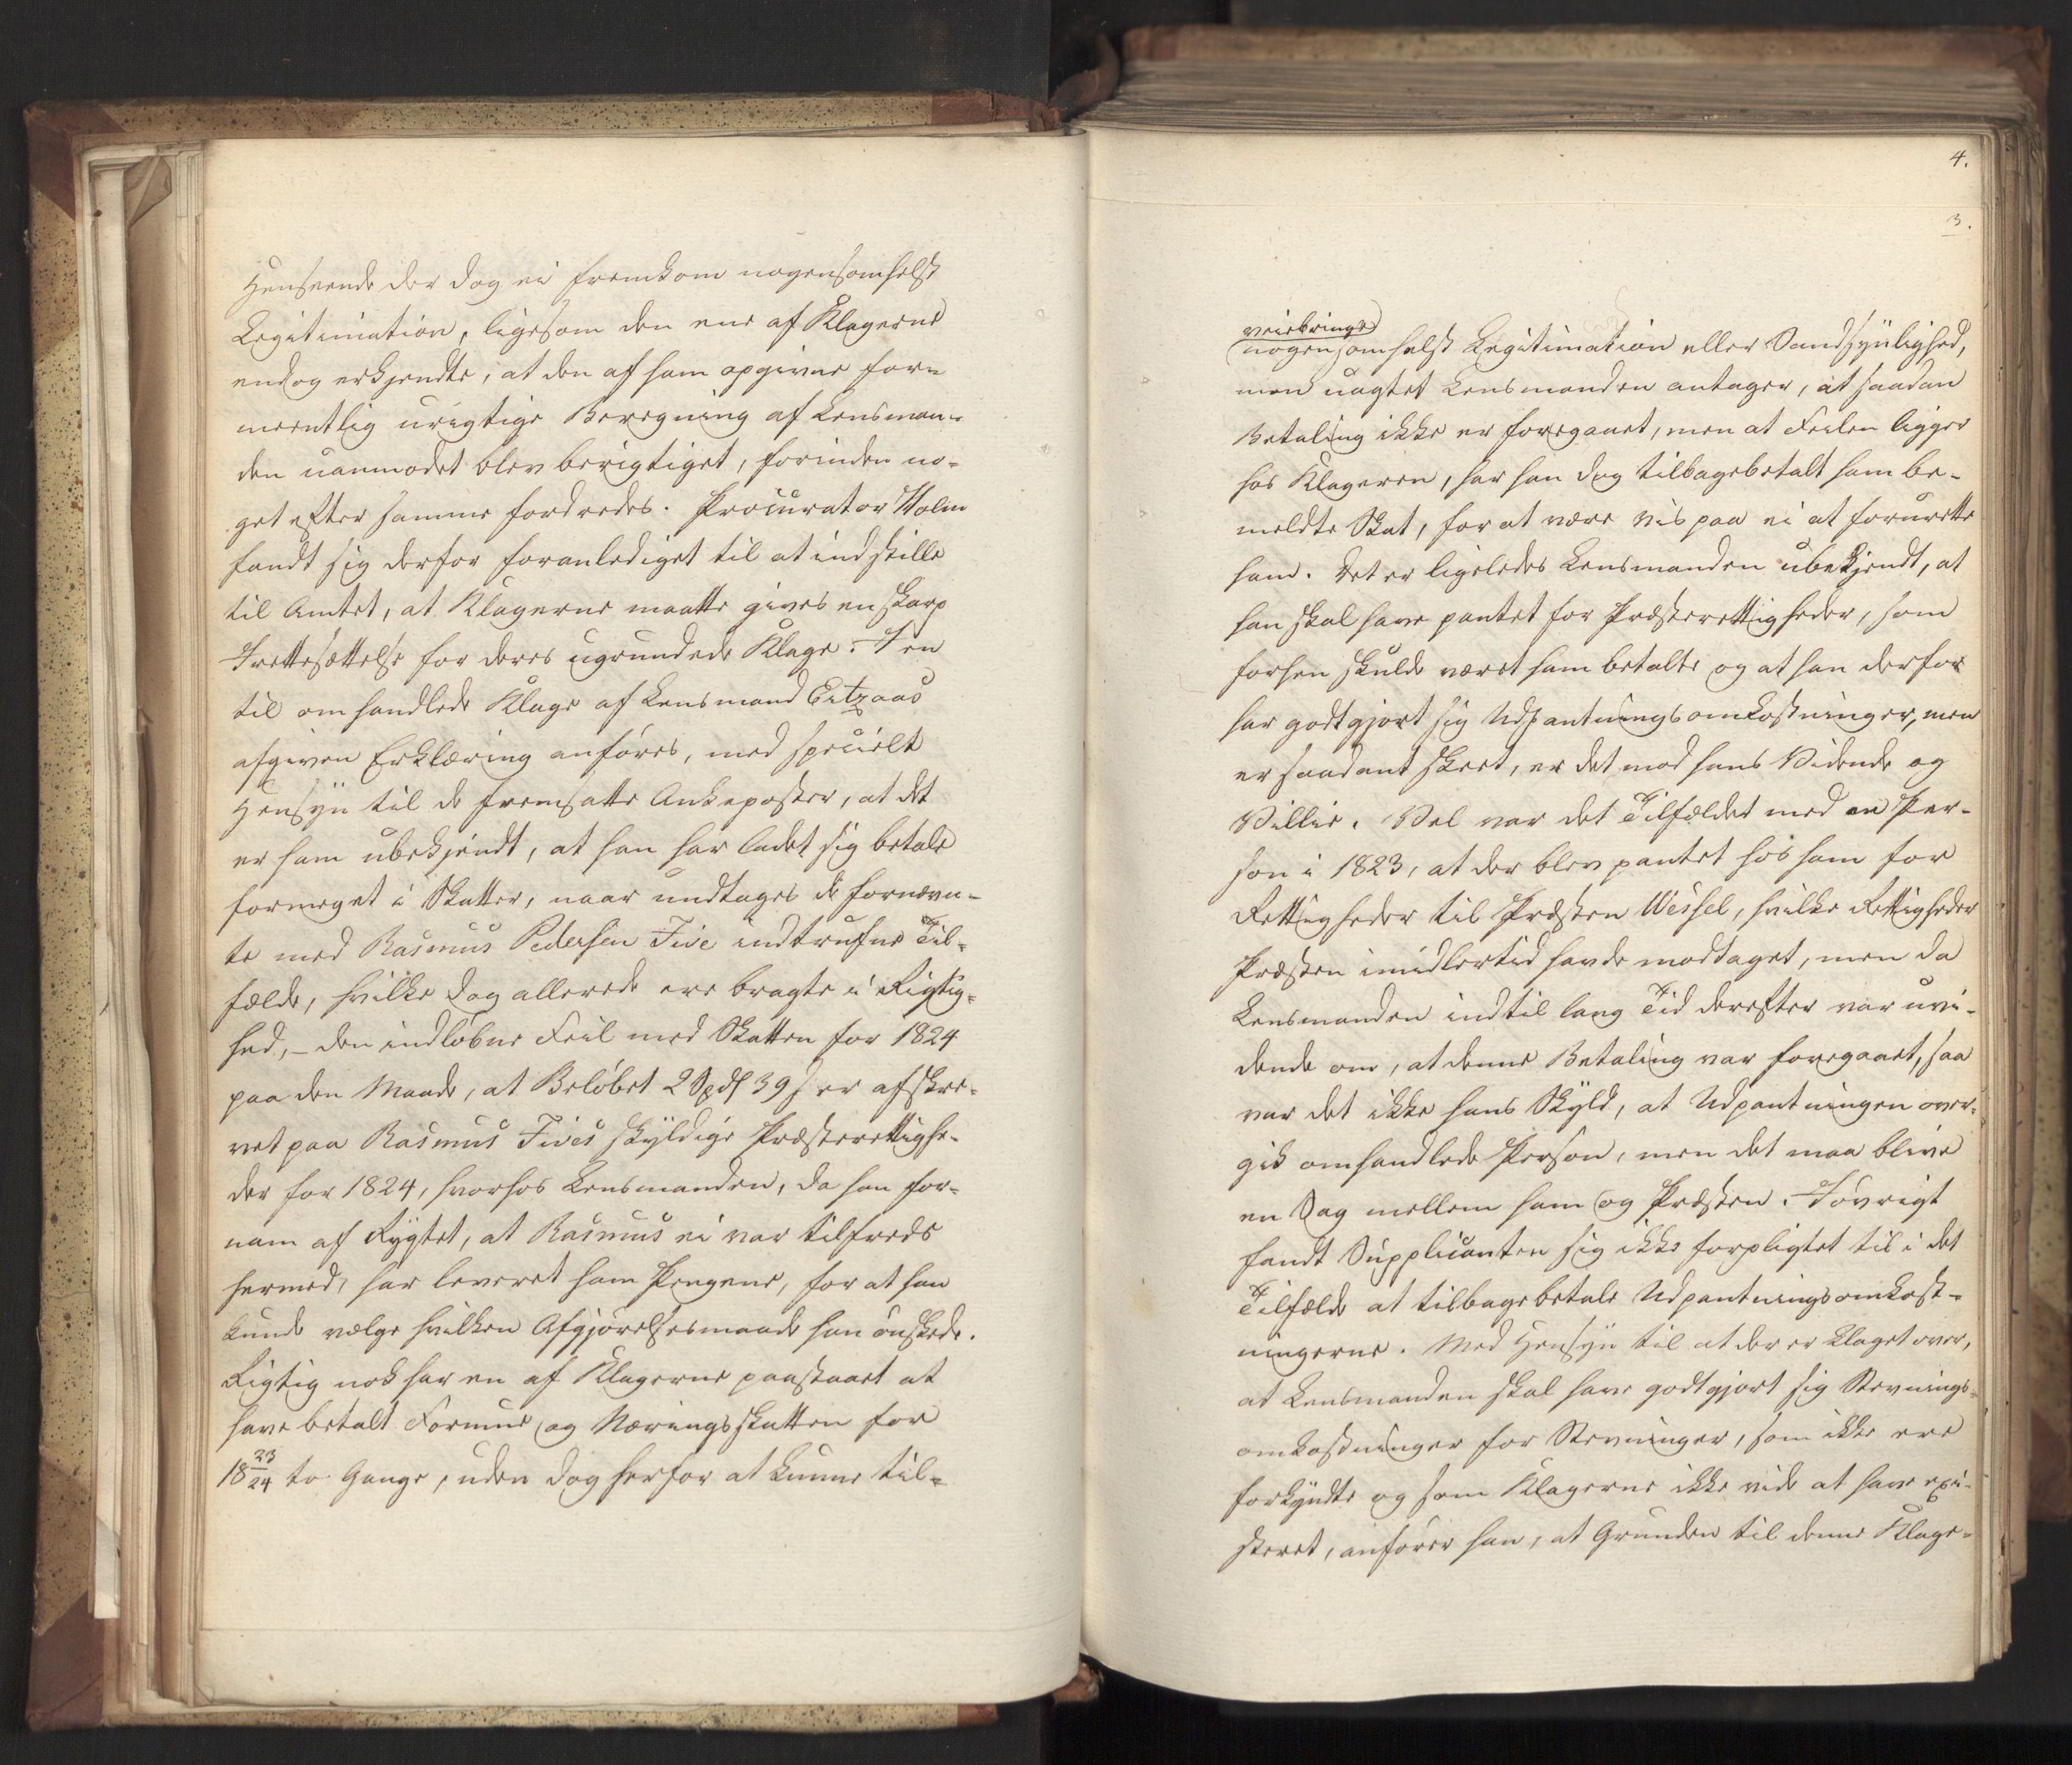 Henseende der dog ei fremkom nogensomhelst
Legitimation, ligesom den ene af Klagerne
endog erkjendte, at den af ham opgivne for-
meentlig urigtige Beregning af Lensman-
den uanmodet blev berigtiget, forinden no-
get efter samme fordredes. Procurator Holm
fandt sig derfor foranlediget til at indstille
til Amtet, at Klagerne maatte gives en skarp
Irettesættelse for deres ugrundede Klage. I en
til omhandlede Klage af Lensmand Eitzaas
afgiven Erklæring anføres, med specielt
Hensyn til de fremsatte Ankeposter, at det
er ham ubekjendt, at han har ladet sig betale
formeget i Skatter, naar undtages de fornævn-
te med Rasmus Pedersen Five indtrufne Til-
fælde, hvilke dog allerede ere bragte i Rigtig-
hed, – den indløbne Feil med Skatten for 1824
paa den Maade, at Beløbet 2 Spd 39 s er afskre-
vet paa Rasmus Fives skyldige Præsterettighe-
der for 1824, hvorhos Lensmanden, da han for-
nam af Rygtet, at Rasmus ei var tilfreds
hermed, har leveret ham Pengene, for at han
kunde vælge hvilken Afgjørelsesmaade han ønskede.
Rigtig nok har en af Klagerne paastaaet at
have betalt Formue og Næringsskatten for
18 23/24 to Gange, uden dog herfor at kunne til-
4.
3.
veiebringe
nogensomhelst Legitimation eller Sandsynlighed,
men uagtet Lensmanden antager, at saadan
Betaling ikke er foregaaet, men at Feilen ligger
hos Klageren, har han dog tilbagebetalt ham be-
meldte Skat, for at være vis paa ei at forurette
ham. Det er ligeledes Lensmanden ubekjendt, at
han skal have pantet for Præsterettigheder, som
forhen skulde været ham betalte og at han derfor
har godtgjort sig Udpantningsomkostninger, men
er saadant skeet, er det mod hans Vidende og
Villie. Vel var det Tilfældet med en Per-
son i 1823, at der blev pantet hos ham for
Rettigheder til Præsten Wessel, hvilke Rettigheder
Præsten imidlertid havde modtaget, men da
Lensmanden indtil lang Tid derefter var uvi-
dende om, at denne Betaling var foregaaet, saa
var det ikke hans Skyld, at Udpantningen over-
gik omhandlede Person, men det maa blive
en Sag mellem ham og Præsten. Iøvrigt
fandt Supplicanten sig ikke forpligtet til i det
Tilfælde at tilbagebetale Udpantningsomkost-
ningerne. Med Hensyn til at der er klaget over,
at Lensmanden skal have godtgjort sig Stevnings-
omkostninger for Stevninger, som ikke ere
forkyndte og som Klagerne ikke vide at have exi-
steret, anfører han, at Grunden til denne Klage-